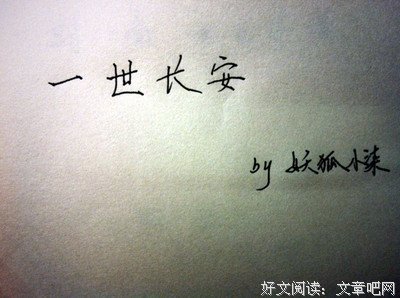 一世长安
by 妖狐小柒
好文阅读：文章吧网